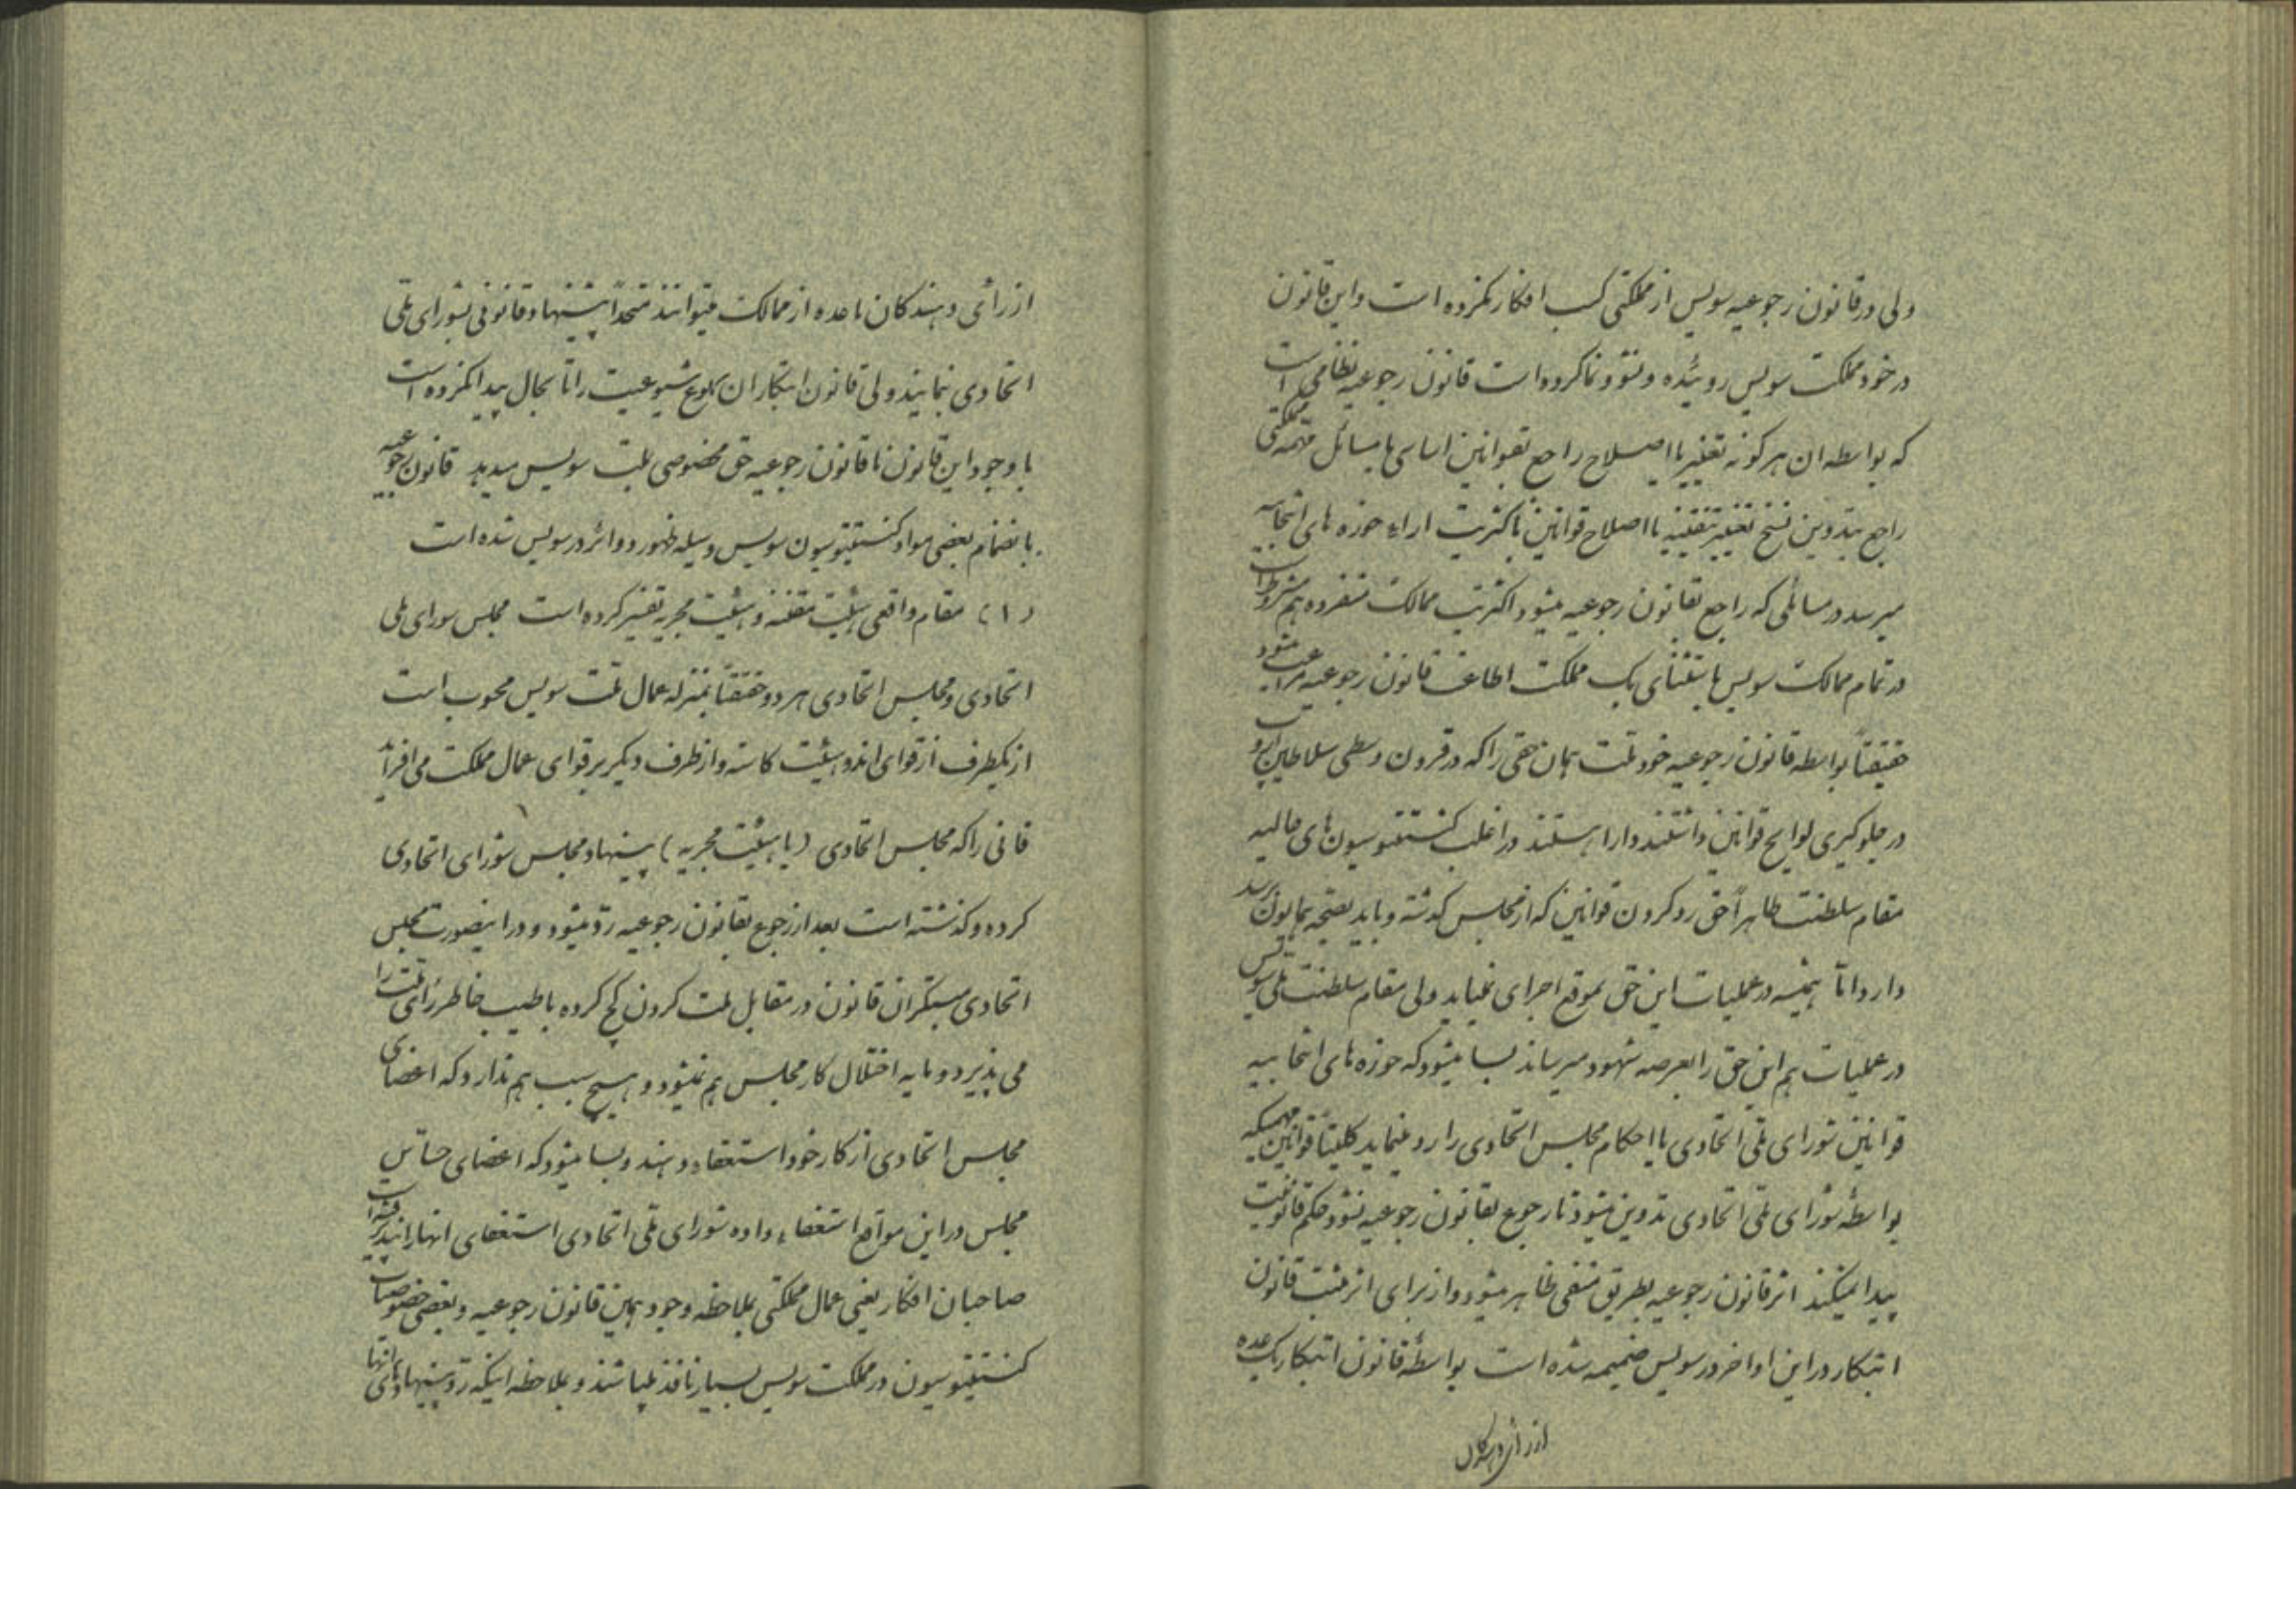 ولی در قانون رجوعیه سویس از مملکتی کسب افکار نکرده است و این قانون
در خود مملکت سویس روئیده و نشو و نما کرده است قانون رجوعیه نظامی است
که بواسطه ان هر گونه تغییر یا اصلاح راجع بقوانین اساسی یا مسائل مهمه مملکتی
راجع بتدوین نسخ تغییر تنقیه یا اصلاح قوانین باکثریت اراء حوزه های انتخابیه
میرسد در مسائلی که راجع بقانون رجوعیه میشود اکثریت ممالک منفرده هم مشروط است
در تمام ممالک سویس باستثنای یک مملکت اطاعت قانون رجوعیه مراعت میشود
حقیقتاً بواسطه قانون رجوعیه خود ملت همان حقی را که در قرون وسطی سلاطین اروپ
در جلوگیری لوایح قوانین داشتند دارا هستند در اغلب کنستیتوسیون های حالیه
مقام سلطنت ظاهراً حق رد کردن قوانین که از مجلس گذشته و باید بصحه همایون برسد
دارد اما همیشه در عملیات این حق بموقع اجرای نمیاید ولی مقام سلطنت ملی سویس
در عملیات هم این حق را بعرصه شهود میرساند بسا میشود که حوزه های انتخابیه
قوانین شورای ملی اتحادی یا احکام مجلس اتحادی را رد مینماید کلیتاً قوانین مهمیکه
بواسطهٔ شورای ملی اتحادی تدوین میشود تا رجوع بقانون رجوعیه نشود حکم قانونیت
پیدا نمیکند اثر قانون رجوعیه بطریق منفی ظاهر میشود و از برای اثر مثبت قانون
ابتکار در این اواخر در سویس ضمیمه شده است بواسطهٔ قانون ابتکار یک عده
از رأی دهندگان
از رأی دهندگان یا عده از ممالک میتوانند متحداً پیشنهاد قانونی بشورای ملی
اتحادی نمایند ولی قانون ابتکار ان بلوغ شیوعیت را تا بحال پیدا نکرده است
با وجود این قانون با قانون رجوعیه حق مخصوصی بملت سویس میدهد قانون رجوعیه
بانضمام بعضی مواد کنستیتوسیون سویس وسیله ظهور دو اثر در سویس شده است
(۱) مقام واقعی هیئت مقننه و هیئت مجریه تغییر کرده است مجلس شورای ملی
اتحادی و مجلس اتحادی هر دو حقیقتاً بمنزله عمال ملت سویس محسوب است
از یکطرف از قوای این دو هیئت کاسته و از طرف دیگر بر قوای عمال مملکت می افزاید
قانونی را که مجلس اتحادی (یا هیئت مجریه) پیشنهاد مجلس شورای اتحادی
کرده و گذشته است بعد از رجوع بقانون رجوعیه رد میشود و در اینصورت مجلس
اتحادی مبتکران قانون در مقابل ملت گردن کج کرده با طیب خاطر رأی ملت را
می پذیرد و مایه اختلال کار مجلس هم نمیشود و هیچ سبب هم ندارد که اعضای
مجلس اتحادی از کار خود استعفاء دهند و بسا میشود که اعضای حساس
مجلس در این مواقع استعفاء داده شورای ملی اتحادی استعفای انها را نپذیرفته است
صاحبان افکار یعنی عمال مملکتی بملاحظه وجود همین قانون رجوعیه و بعضی خصوصیات
کنستیتوسیون در مملکت سویس بسیار نافذ میباشند و بملاحظه اینکه رد پیشنهادهای انها